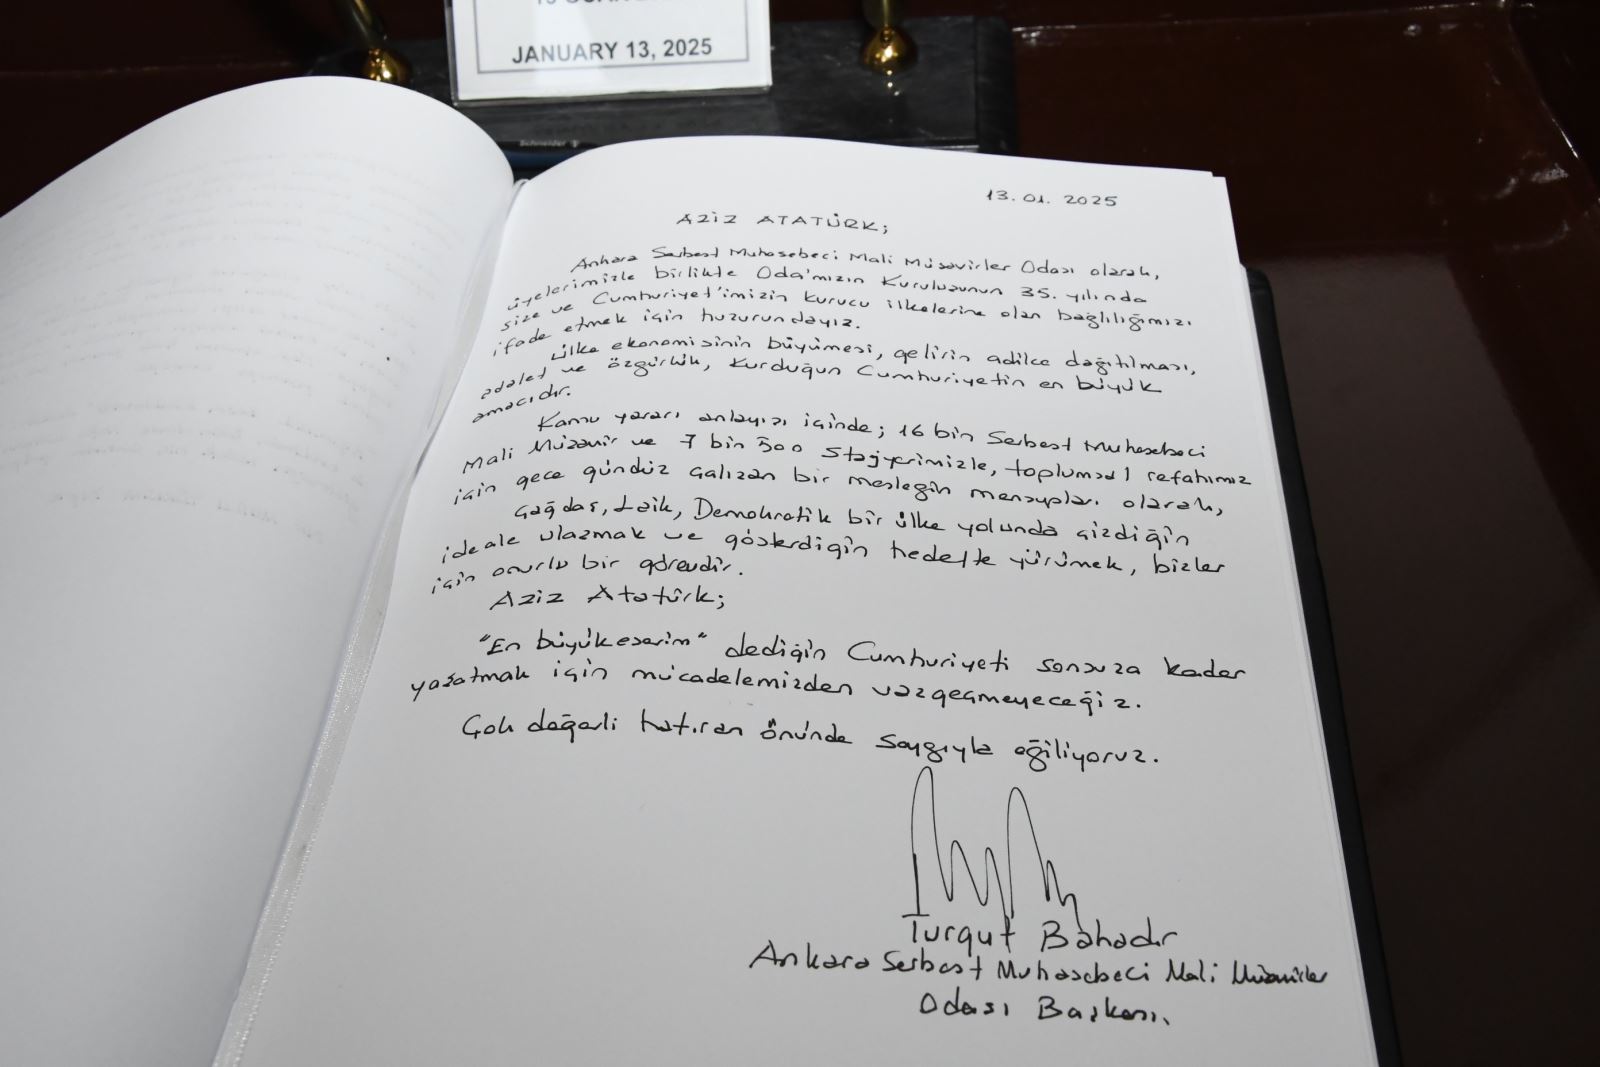 JANUARY 13, 2025
Schneider
13.01.2025
AZİZ ATATÜRK;
Ankara Serbest Muhasebeci Mali Müşavirler Odası olarak,
üyelerimizle birlikte Oda'mızın Kuruluşunun 35. yılında
size ve Cumhuriyet'imizin kurucu ilkelerine olan bağlılığımızı
ifade etmek için huzurundayız.
Ülke ekonomisinin büyümesi, gelirin adilce dağıtılması,
adalet ve özgürlük, kurduğun Cumhuriyetin en büyük
amacıdır.
Kamu yararı anlayışı içinde; 16 bin Serbest Muhasebeci
Mali Müşavir ve 7 bin 500 Stajyerimizle, toplumsal refahımız
için gece gündüz çalışan bir mesleğin mensupları olarak,
Çağdaş, Laik, Demokratik bir ülke yolunda çizdiğin
ideale ulaşmak ve gösterdiğin hedefte yürümek, bizler
için onurlu bir görevdir.
Aziz Atatürk;
"En büyük eserim" dediğin Cumhuriyeti sonsuza kadar
yaşatmak için mücadelemizden vazgeçmeyeceğiz.
Çok değerli hatıran önünde saygıyla eğiliyoruz.
Turgut Bahadır
Ankara Serbest Muhasebeci Mali Müşavirler
Odası Başkanı.